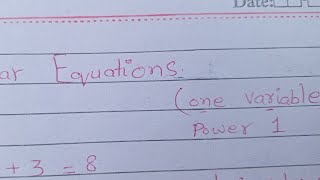 Date:
ar Equations.
(one variable
Power 1
+ 3 = 8